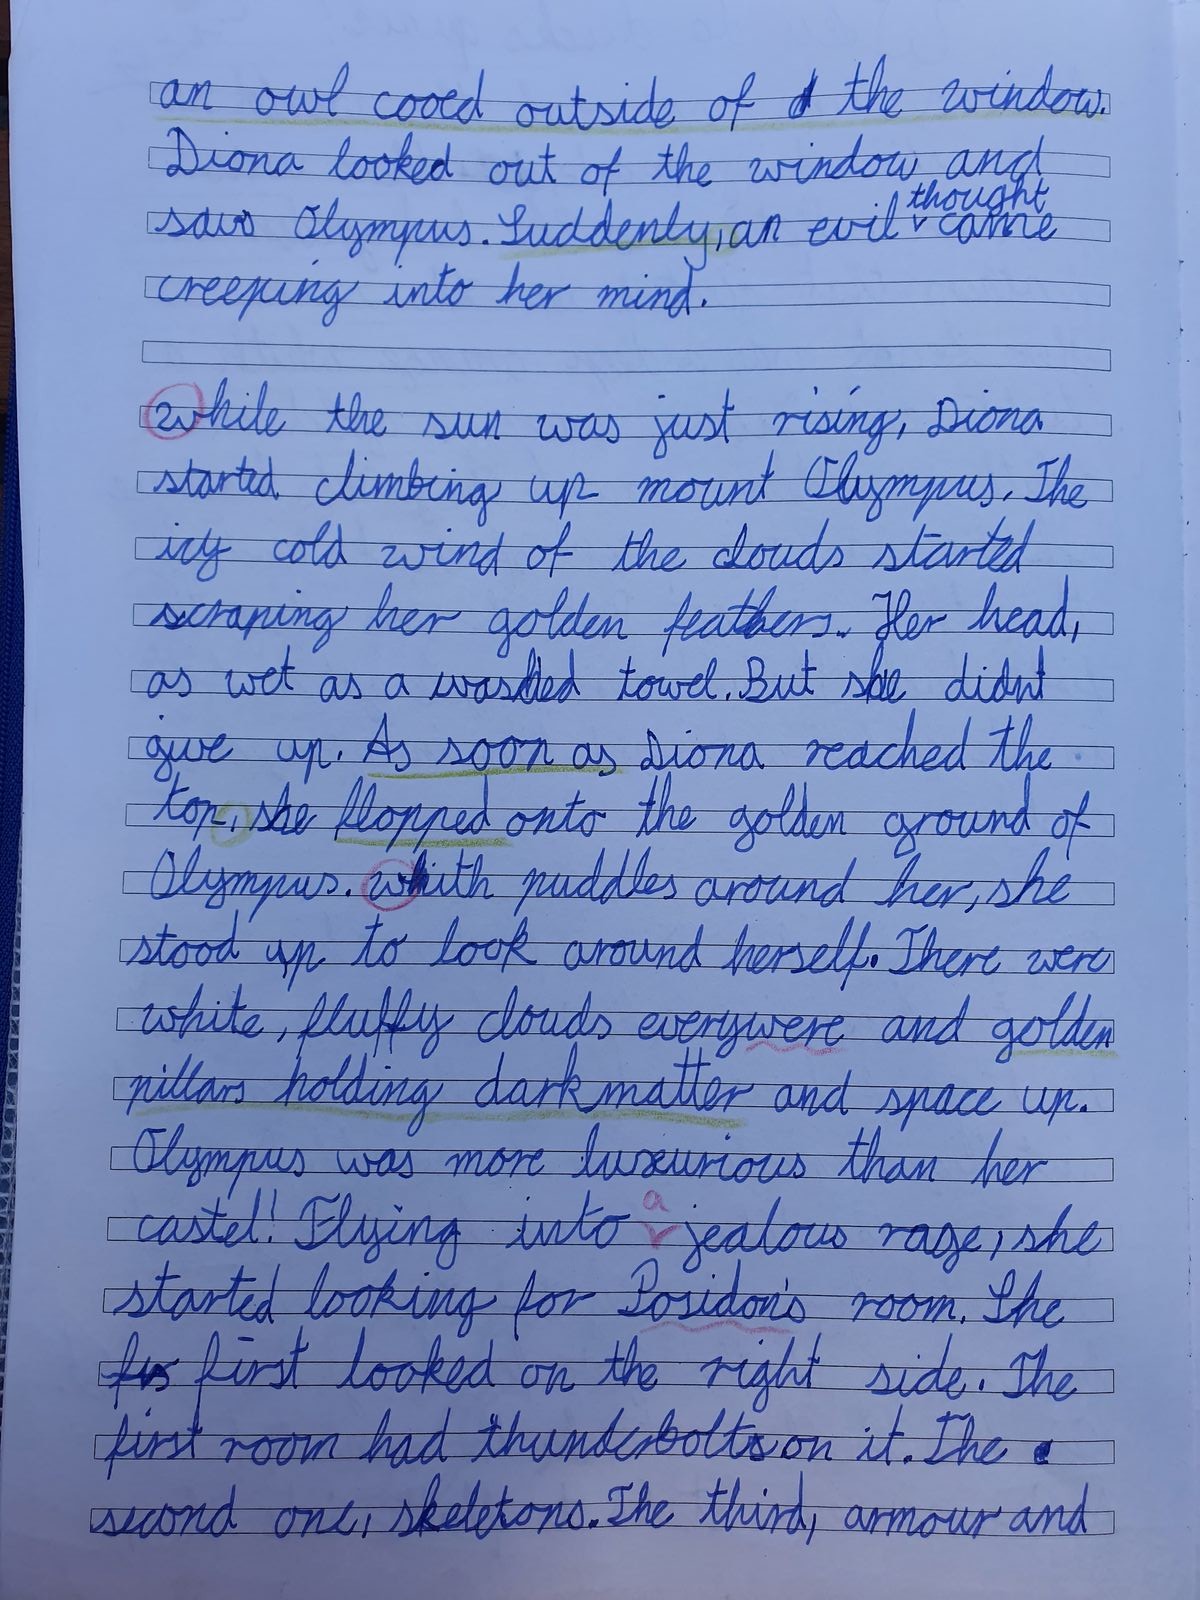 an owl cooed outside of the window.
Diona looked out of the window and
thought
saw Olympus. Suddenly, an evil came
creeping into her mind.
while the sun was just rising, Diona
started climbing up mount Olympus. The
icy cold wind of the clouds started
scraping her golden feathers. Her head,
as wet as a washed towel. But she didnt
give up. As soon as Diona reached the
top, she flopped onto the golden ground of
Olympus. with puddles around her, she
stood up to look around herself. There were
white, fluffy clouds everywere and golden
pillars holding darkmatter and space up.
Olympus was more luxurious than her
a
castel! Flying into jealous rage, she
started looking for Posidon's room. She
first looked on the right side. The
first room had thunderbolts on it. The
second one, skeletons. The third, armour and